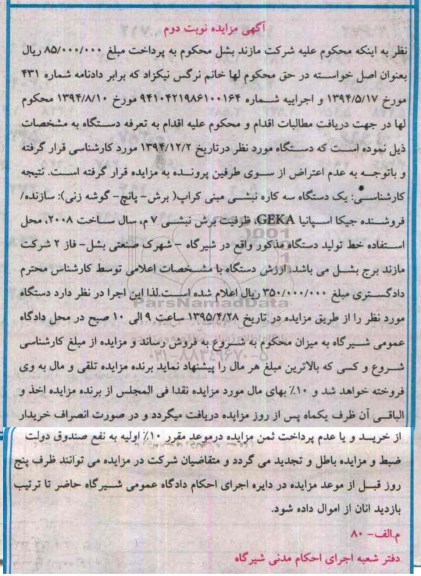 آگهی مزایده نوبت دوم
نظر به اینکه محکوم علیه شرکت مازند بشل محکوم به پرداخت مبلغ ۸۵/۰۰۰/۰۰۰ ریال
بعنوان اصل خواسته در حق محکوم لها خانم نرگس نیکزاد که برابر دادنامه شماره ۴۳۱
مورخ ۱۳۹۴/۵/۱۷ و اجراییه شماره ۹۴۱۰۴۲۱۹۸۶۱۰۰۱۶۴ مورخ ۱۳۹۴/۸/۱۰ محکوم
لها در جهت دریافت مطالبات اقدام و محکوم علیه اقدام به تعرفه دستگاه به مشخصات
ذیل نموده است که دستگاه مورد نظر درتاریخ ۱۳۹۴/۱۲/۲ مورد کارشناسی قرار گرفته
و باتوجه به عدم اعتراض از سوی طرفین پرونده به مزایده قرار گرفته است. نتیجه
کارشناسی: یک دستگاه سه کاره نبشی مینی کراپ( برش- پانچ- گوشه زنی): سازنده/
فروشنده جیکا اسپانیا GEKA، ظرفیت برش نبشی ۷م، سال ساخت ۲۰۰۸، محل
استفاده خط تولید دستگاه مذکور واقع در شیرگاه - شهرک صنعتی بشل- فاز ۲ شرکت
مازند برج بشل می باشد. ارزش دستگاه با مشخصات اعلامی توسط کارشناس محترم
دادگستری مبلغ ۳۵۰/۰۰۰/۰۰۰ ریال اعلام شده است.لذا این اجرا در نظر دارد دستگاه
مورد نظر را از طریق مزایده در تاریخ ۱۳۹۵/۴/۲۸ ساعت ۹ الی ۱۰ صبح در محل دادگاه
عمومی شیرگاه به میزان محکوم به شروع به فروش رساند و مزایده از مبلغ کارشناسی
شروع و کسی که بالاترین مبلغ هر مال را پیشنهاد نماید برنده مزایده تلقی و مال به وی
فروخته خواهد شد و ۱۰٪ بهای مال مورد مزایده نقدا فی المجلس از برنده مزایده اخذ و
الباقی آن ظرف یکماه پس از روز مزایده دریافت میگردد و در صورت انصراف خریدار
از خریـد و یا عدم پرداخت ثمن مزایده درموعد مقرر ۱۰٪ اولیه به نفع صندوق دولت
ضبط و مزایده باطل و تجدید می گردد و متقاضیان شرکت در مزایده می توانند ظرف پنج
روز قبل از موعد مزایده در دایره اجرای احکام دادگاه عمومی شیرگاه حاضر تا ترتیب
بازدید انان از اموال داده شود.
م.الف- ۸۰
دفتر شعبه اجرای احکام مدنی شیرگاه
ParsNamadData
۰۲۱-۸۸۳۴۹۶۷۰-۵